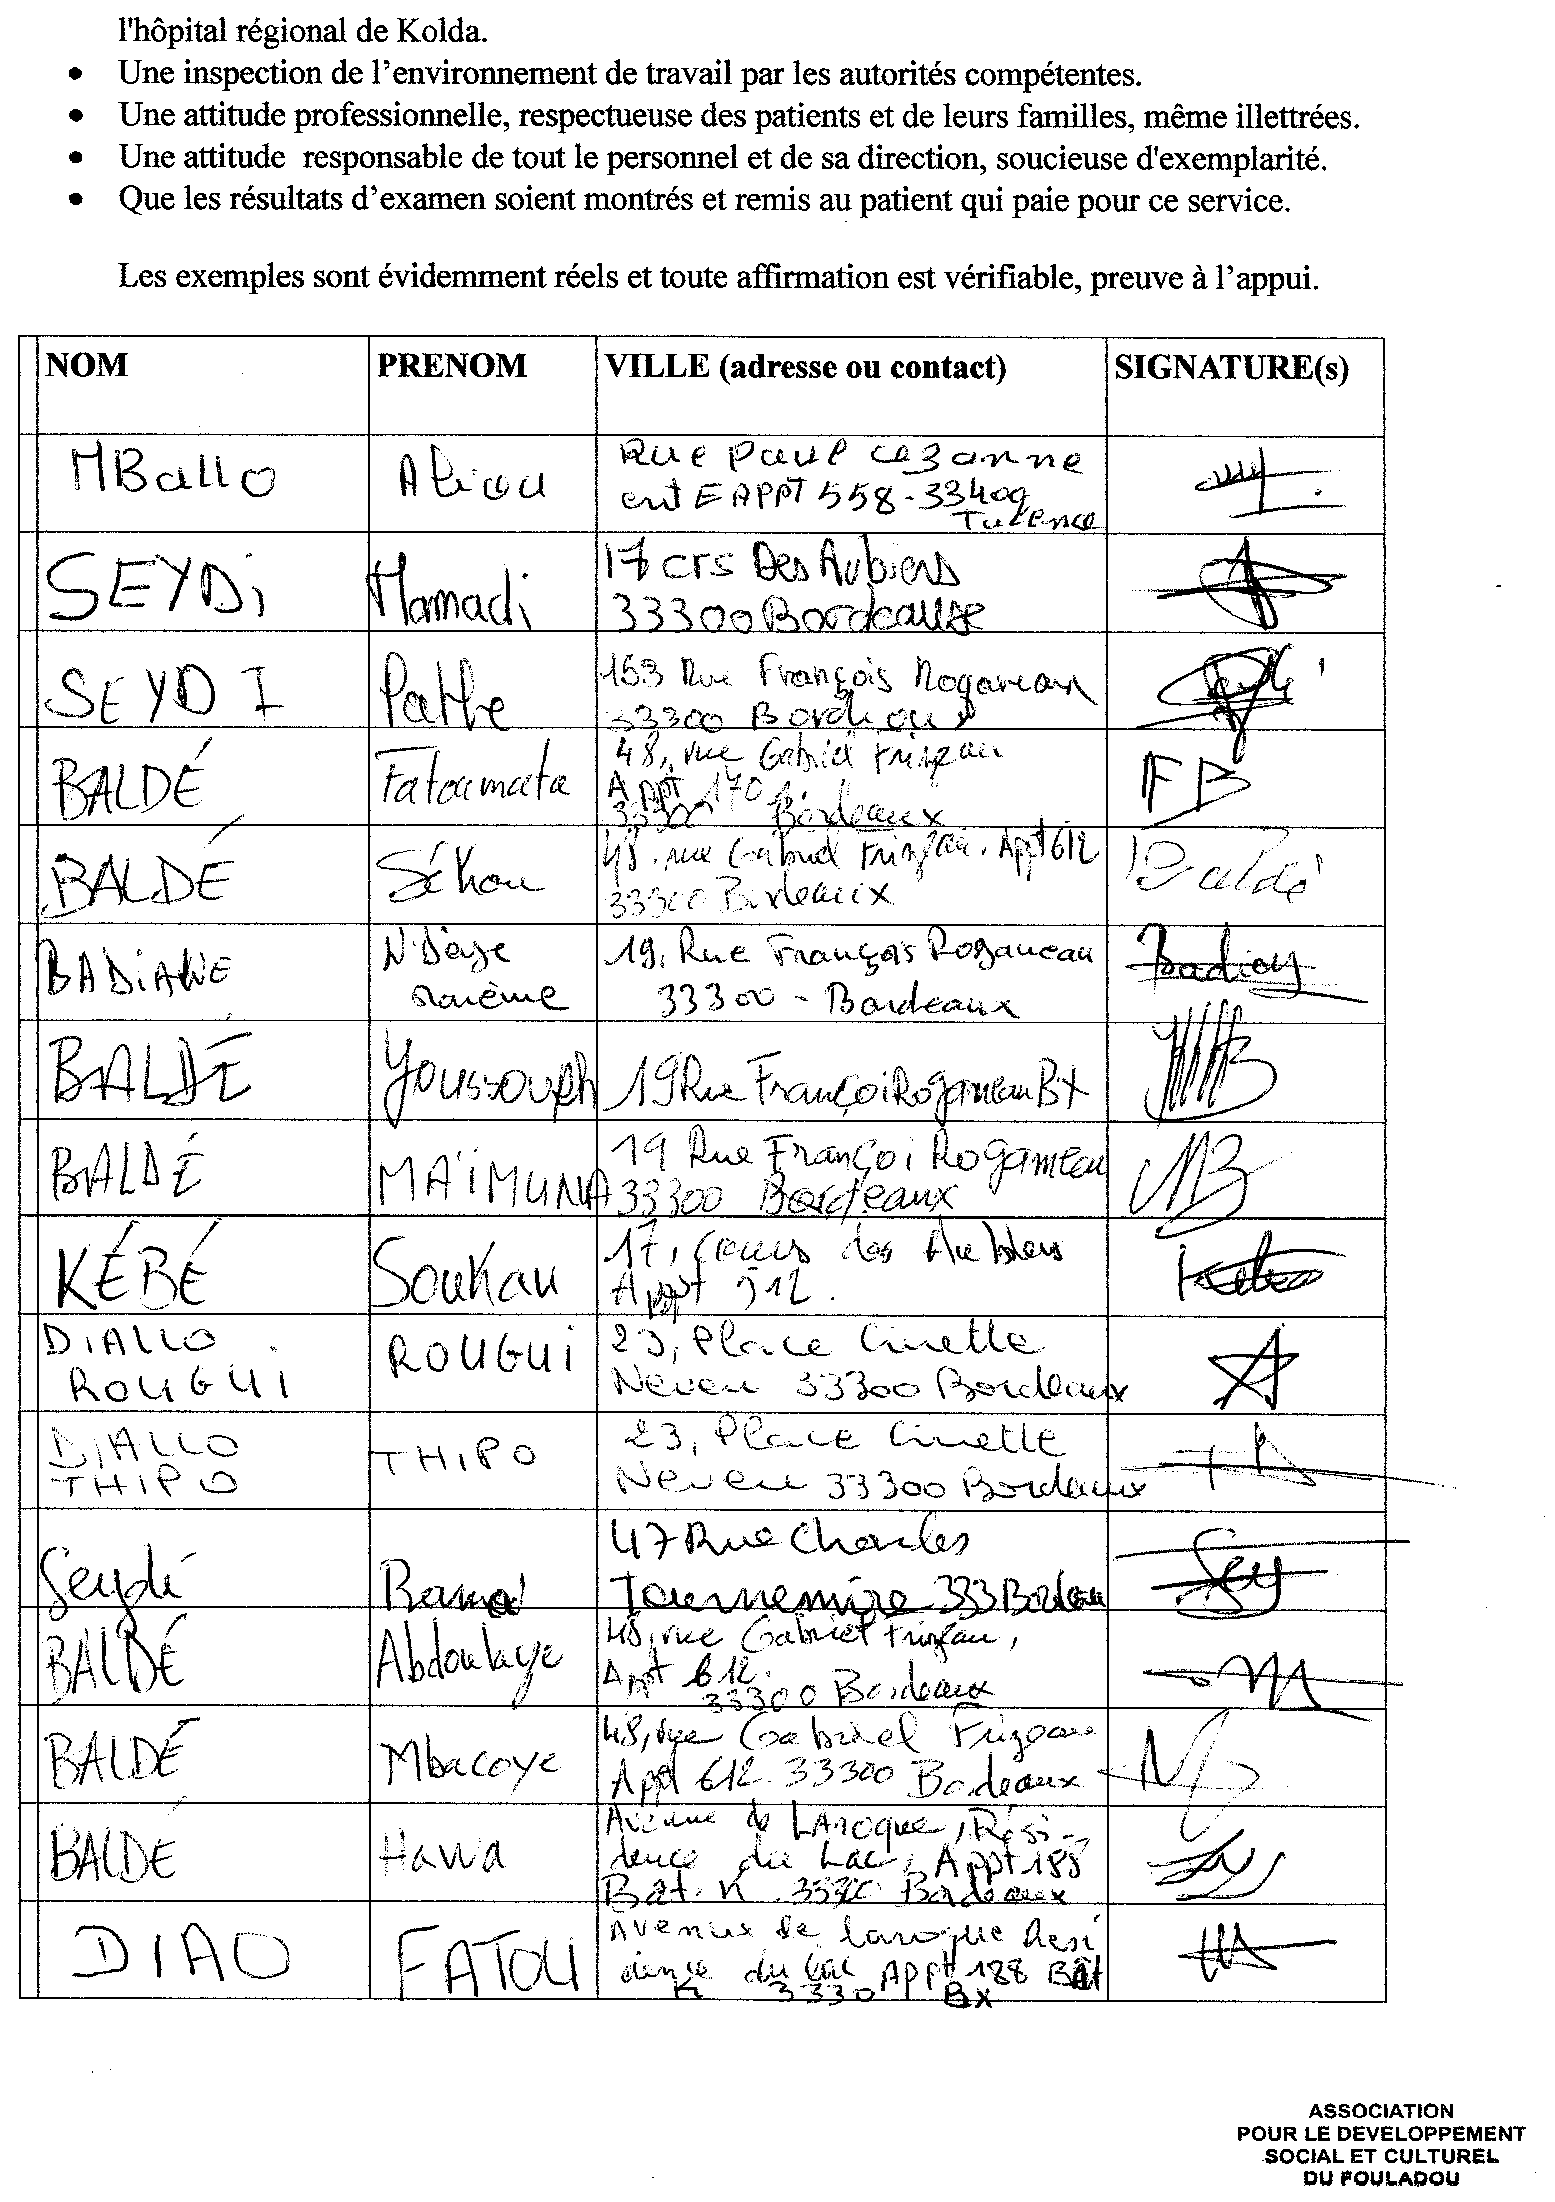 l'hôpital régional de Kolda.
• Une inspection de l’environnement de travail par les autorités compétentes.
• Une attitude professionnelle, respectueuse des patients et de leurs familles, même illettrées.
• Une attitude responsable de tout le personnel et de sa direction, soucieuse d'exemplarité.
• Que les résultats d’examen soient montrés et remis au patient qui paie pour ce service.
Les exemples sont évidemment réels et toute affirmation est vérifiable, preuve à l’appui.
NOM PRENOM VILLE (adresse ou contact) SIGNATURE(s)
MBallo Aliou Rue Paul Cezanne
ent E APPT 558 - 33400
Talence
SEYDi Mamadi 17 crs Des Aubiers
33300 Bordeaux
SEYDI Pathe 153 Rue François Rogaveau
33300 Bordeaux
BALDÉ Fatoumata 48, rue Gabriel Frizeau FB
Appt 170
33300 Bordeaux
BALDÉ Sékou 48, rue Gabriel Frizeau. Appt 612 Baldé
33300 Bordeaux
BADIANE N'Deye 19, Rue François Roganeau
Marème 33300 - Bordeaux
BALDÉ Youssouph 19 Rue Françoi Roganeau Bx
BALDÉ MAÏMUNA 19 Rue Françoi Roganeau MB
33300 Bordeaux
KÉBÉ Soukau 17, Cours des Aubiers
Appt 512.
DiALLO ROUGUI 23, Place Ginette
ROUGUI Neveu 33300 Bordeaux
DiALLO THIPO 23, Place Ginette
THIPO Neveu 33300 Bordeaux
Seydi Rama 47 Rue Charles Sey
Tournemire 333 Bordeau
BALDÉ Abdoulaye 48, rue Gabriel Frizeau,
Appt 612.
33300 Bordeaux
BALDÉ Mbacoye 48, rue Gabriel Frizeau
Appt 612. 33300 Bordeaux
BALDE Hawa Avenue de LAroque, Rési-
dence du Lac, Appt 188
Bat. K 33300 Bordeaux
DIAO FATOU Avenue de Laroque Resi
dence du Lac Appt 188 Bât
K 33300 Bx
ASSOCIATION
POUR LE DEVELOPPEMENT
SOCIAL ET CULTUREL
DU FOULADOU